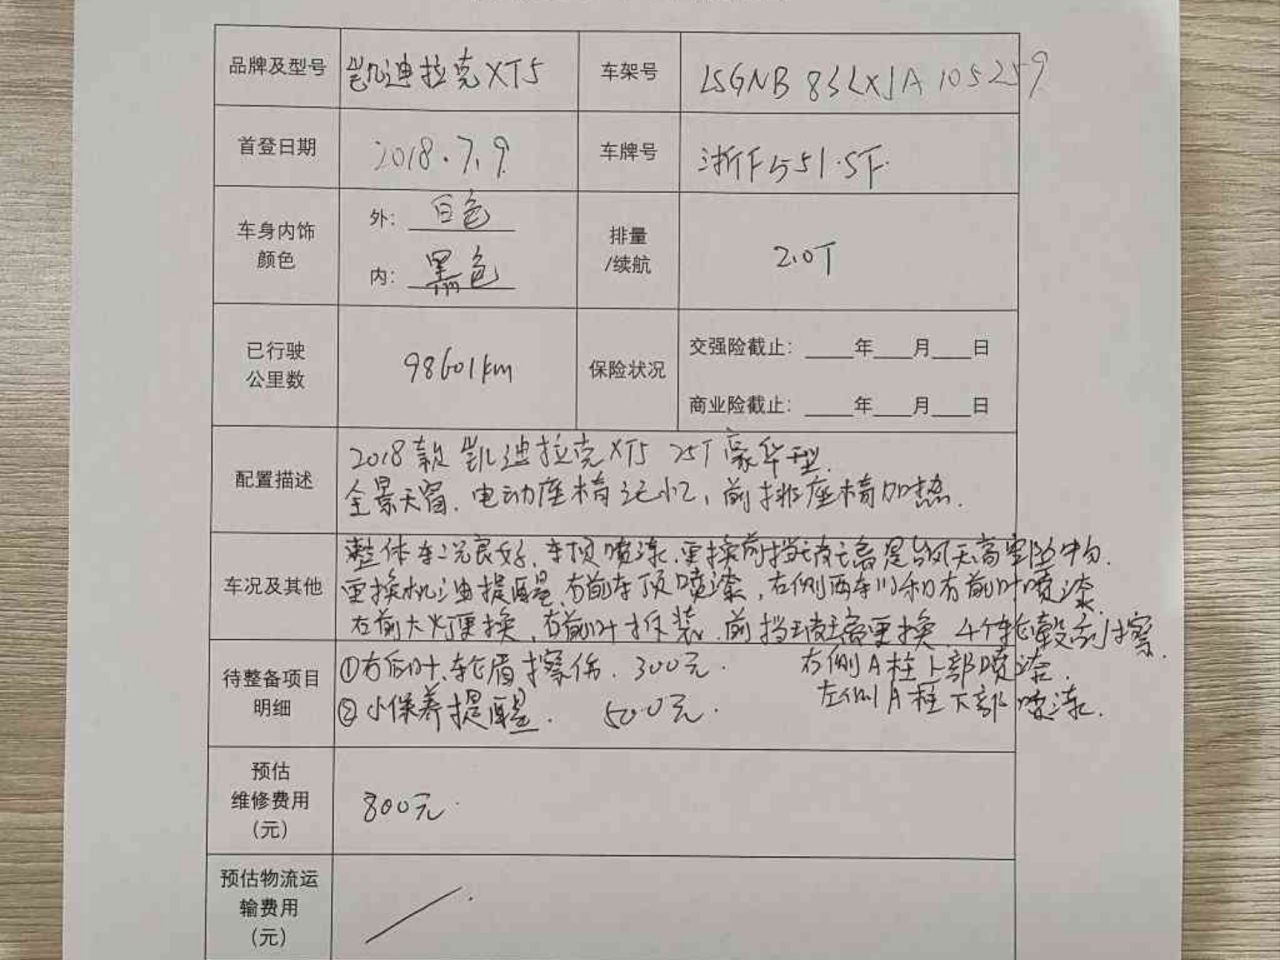 品牌及型号 凯迪拉克XT5 车架号 LSGNB83LXJA105259
首登日期 2018.7.9 车牌号 浙F551.5F
车身内饰颜色 外: 白色 排量/续航 2.0T
内: 黑色
已行驶公里数 98601km 保险状况 交强险截止: ____年___月___日
商业险截止: ____年___月___日
配置描述 2018款凯迪拉克XT5 25T豪华型.
全景天窗、电动座椅记忆、前排座椅加热.
车况及其他 整体车况良好,车顶喷漆,更换前挡玻璃是台风天高空坠物
更换机油提醒,右前车顶喷漆,右侧两车门和右前叶喷漆
右前大灯更换,右前叶拆装,前挡玻璃更换 4个轮毂刮擦.
右侧A柱上部喷漆.
左侧A柱下部喷漆.
待整备项目明细 ①右后叶轮眉擦伤. 300元.
②小保养提醒. 500元.
预估
维修费用
(元) 800元.
预估物流运
输费用
(元)